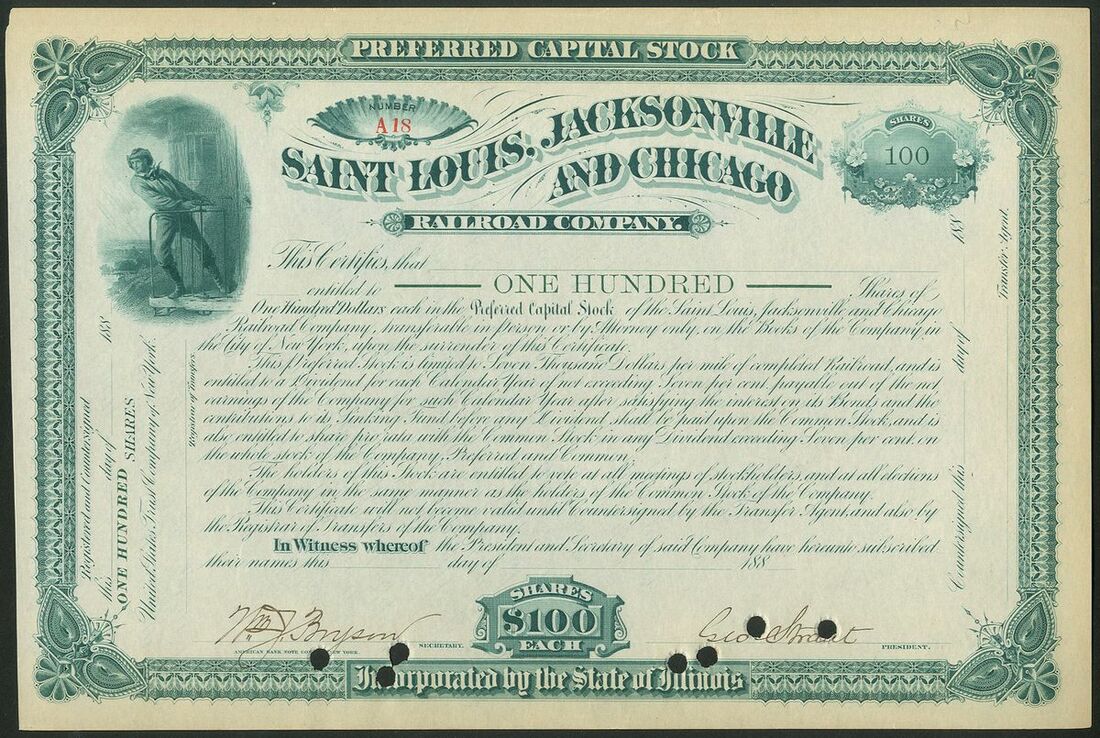 PREFERRED CAPITAL STOCK
NUMBER
A18
SAINT LOUIS, JACKSONVILLE
AND CHICAGO
RAILROAD COMPANY.
SHARES
100
This Certifies, that
entitled to ONE HUNDRED Shares of
One Hundred Dollars each in the Preferred Capital Stock of the Saint Louis, Jacksonville and Chicago
Railroad Company, transferable in Person or by Attorney only, on the Books of the Company in
the City of New York, upon the surrender of this Certificate.
This Preferred Stock is limited to Seven Thousand Dollars per mile of completed Railroad, and is
entitled to a Dividend for each Calendar Year of not exceeding Seven per cent. payable out of the net
earnings of the Company for such Calendar Year after satisfying the interest on its Bonds and the
contributions to its Sinking Fund before any Dividend shall be paid upon the Common Stock, and is
also entitled to share pro rata with the Common Stock in any Dividend exceeding Seven per cent. on
the whole stock of the Company, Preferred and Common.
The holders of this Stock are entitled to vote at all meetings of stockholders and at all elections
of the Company in the same manner as the holders of the Common Stock of the Company.
This Certificate will not become valid until Countersigned by the Transfer Agent, and also by
the Registrar of Transfers of the Company.
In Witness whereof the President and Secretary of said Company have hereunto subscribed
their names this day of 188
SHARES
$100
EACH
SECRETARY.
PRESIDENT.
AMERICAN BANK NOTE YORK.
Incorporated by the State of Illinois
Registered and countersigned
this day of 188
ONE HUNDRED SHARES
United States Trust Company of New York.
Registrar of Transfers.
Countersigned this day of 188
Transfer Agent.